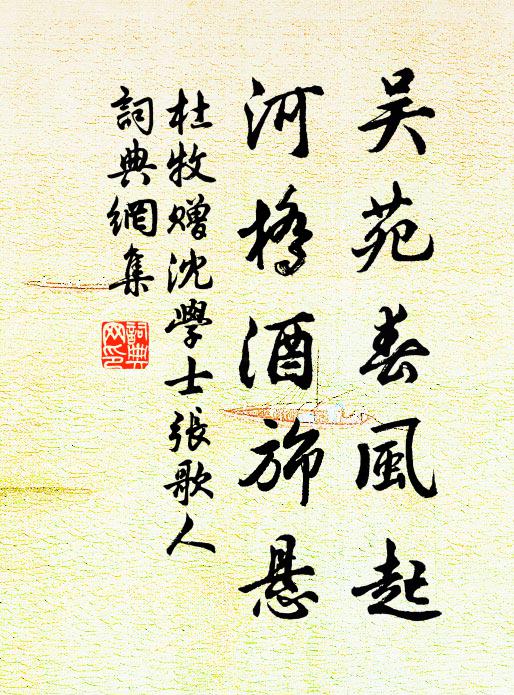 吴苑春風起
河橋酒旆悬
杜牧贈沈學士張歌人
詞典網集
詞典网印